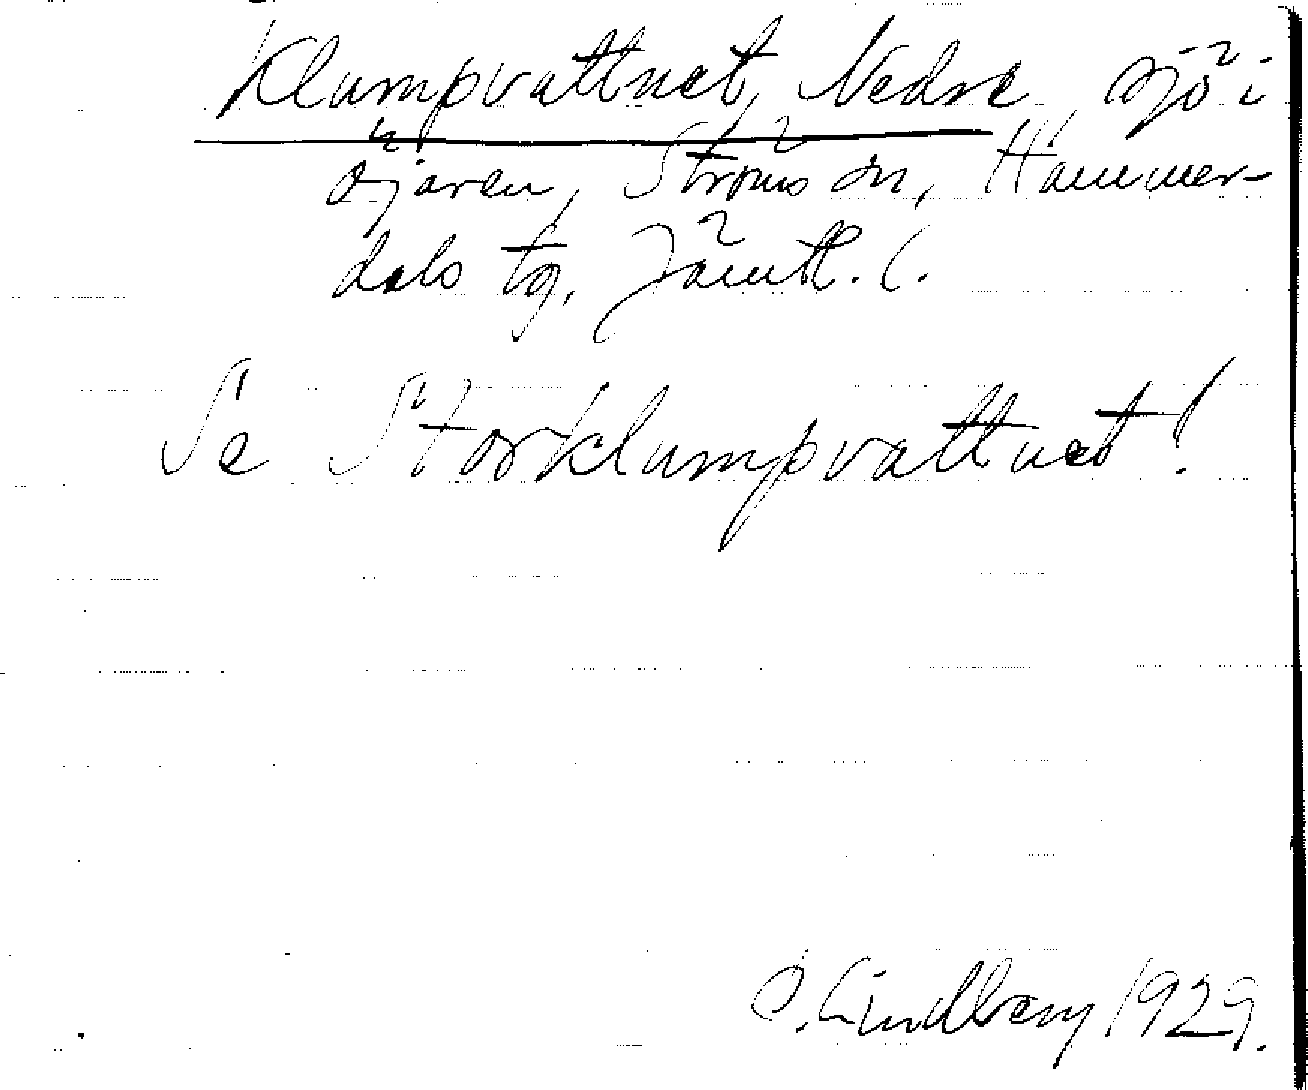 Klumpvattnet, Nedre, sjö i
fjären, Ströms sn, Hammer-
dals tg, Jämtl. l.
Se Storklumpvattnet!
O. Lindberg 1929.